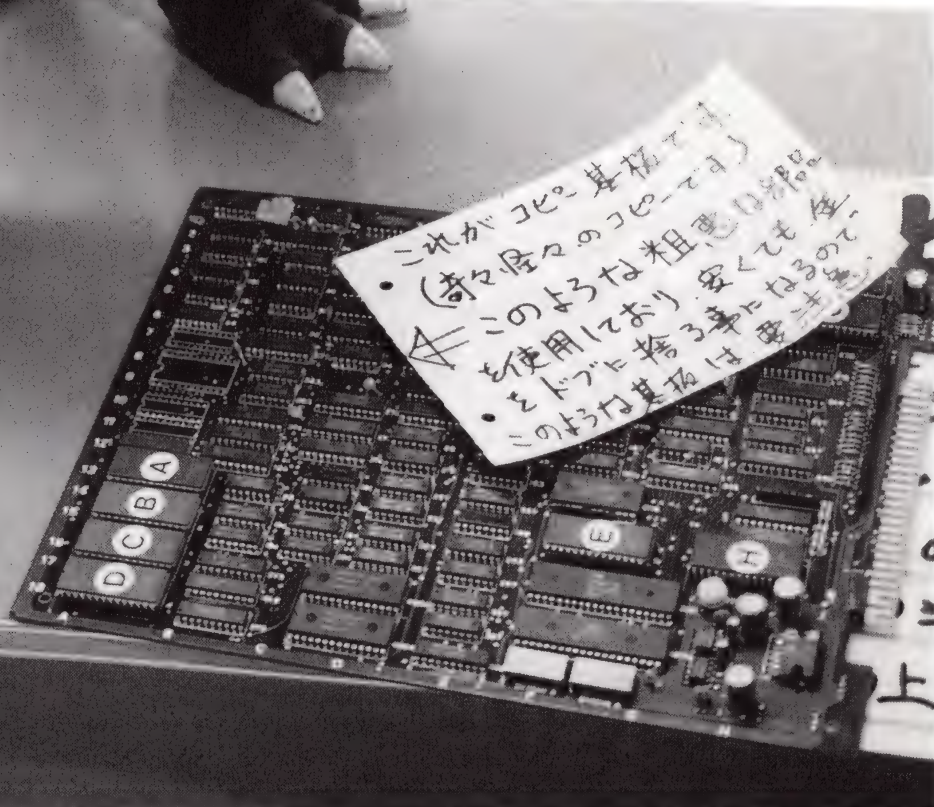 これがコピー基板です
(奇々怪々のコピーです)
このような粗悪な部品
を使用しており、安くても、金、
をドブに捨る事になるので
このような基板は要注意。
A
B
C
D
E
H